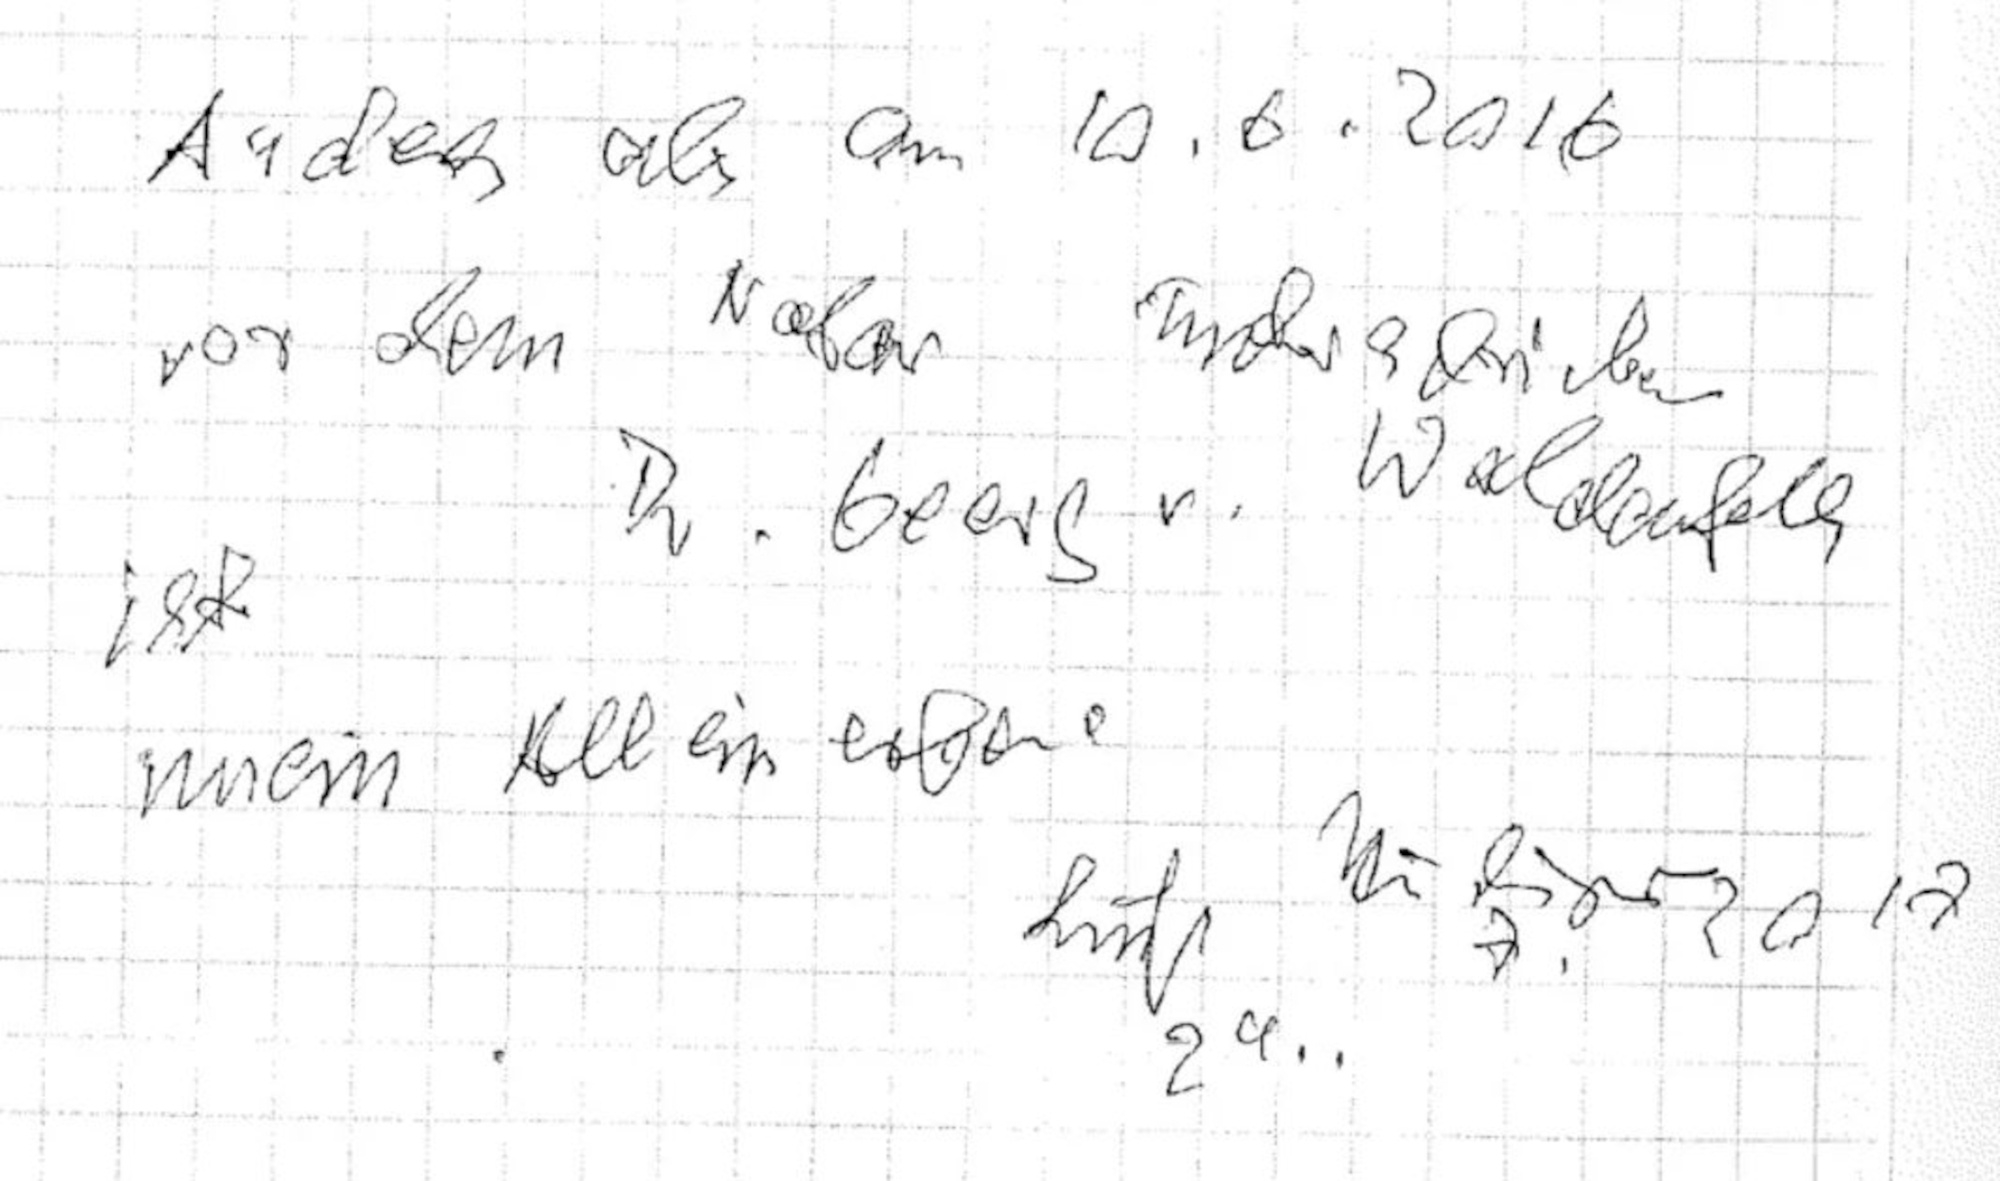 Anders als am 10.6.2016
vor dem Notar
Dr. Georg v. Waldenfels
ist
mein Alleinerbe
2017
7.
24..